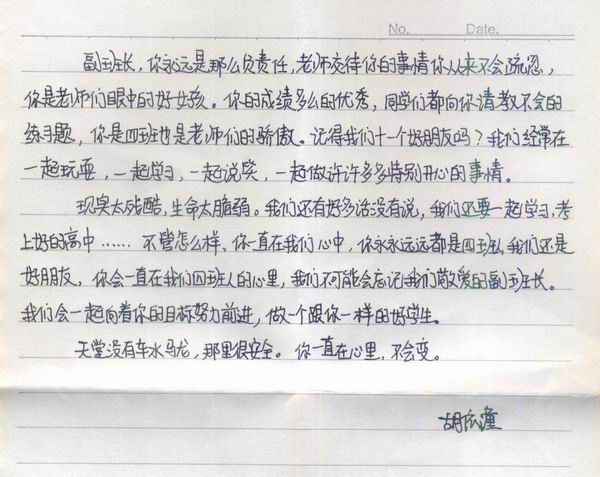 No. Date.
副班长，你永远是那么负责任，老师交待你的事情你从来不会疏忽，
你是老师们眼中的好女孩。你的成绩多么的优秀，同学们都向你请教不会的
练习题，你是四班也是老师们的骄傲。记得我们十一个好朋友吗？我们经常在
一起玩耍，一起学习，一起说笑，一起做许许多多特别开心的事情。
现实太残酷，生命太脆弱。我们还有好多话没有说，我们还要一起学习，考
上好的高中……不管怎么样，你一直在我们心中，你永永远远都是四班人，我们还是
好朋友，你会一直在我们四班人的心里，我们不可能会忘记我们敬爱的副班长。
我们会一起向着你的目标努力前进，做一个跟你一样的好学生。
天堂没有车水马龙，那里很安全。你一直在心里，不会变。
胡